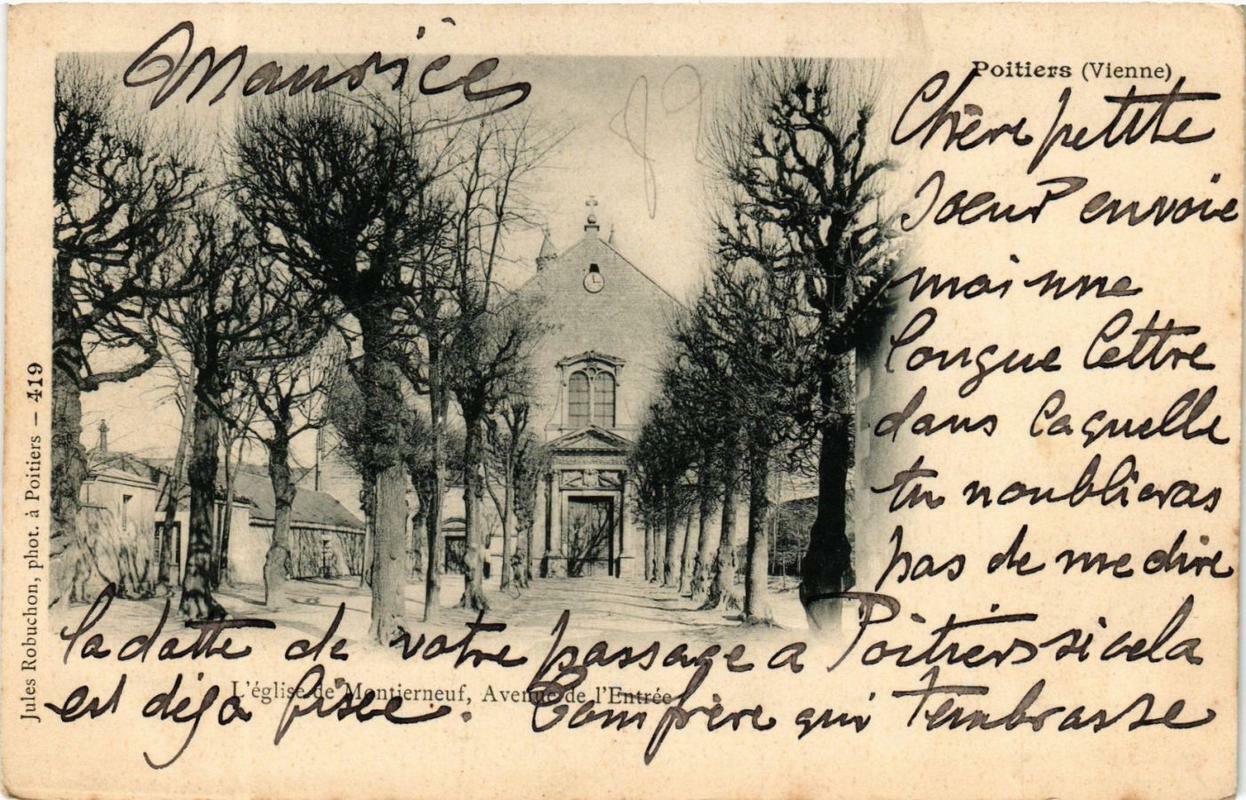 Maurice
Poitiers (Vienne)
Chère petite
soeur envoie
moi une
longue lettre
dans laquelle
tu noublieras
pas de me dire
la datte de votre passage a Poitiers si cela
est déja fisée. Ton frère qui t'embrasse
L'église de Montierneuf, Avenue de l'Entrée
Jules Robuchon, phot. à Poitiers — 419